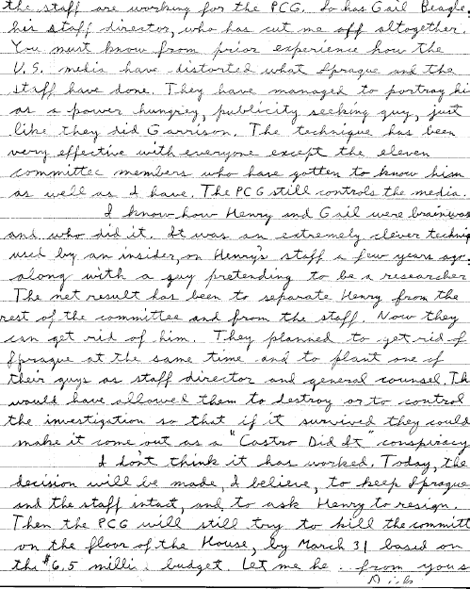 the staff are working for the PCG. So has Gail Beagle,
his staff director, who has cut me off altogether.
You must know from prior experience how the
U.S. media have distorted what Sprague and the
staff have done. They have managed to portray hi
as a power hungry, publicity seeking guy, just
like they did Garrison. The technique has been
very effective with everyone except the eleven
committee members who have gotten to know him
as well as I have. The PCG still controls the media.
I know how Henry and Gail were brainwas
and who did it. It was an extremely clever techniq
used by an insider, on Henry's staff a few years ago,
along with a guy pretending to be a researcher
The net result has been to separate Henry from the
rest of the committee and from the staff. Now they
can get rid of him. They planned to get rid of
Sprague at the same time and to plant one of
their guys as staff director and general counsel. Th
would have allowed them to destroy or to control
the investigation so that if it survived they could
make it come out as a "Castro Did It" conspiracy
I don't think it has worked. Today, the
decision will be made, I believe, to keep Sprague
and the staff intact, and to ask Henry to resign.
Then the PCG will still try to kill the committ
on the floor of the House, by March 31 based on
the $6.5 milli budget. Let me he from you s